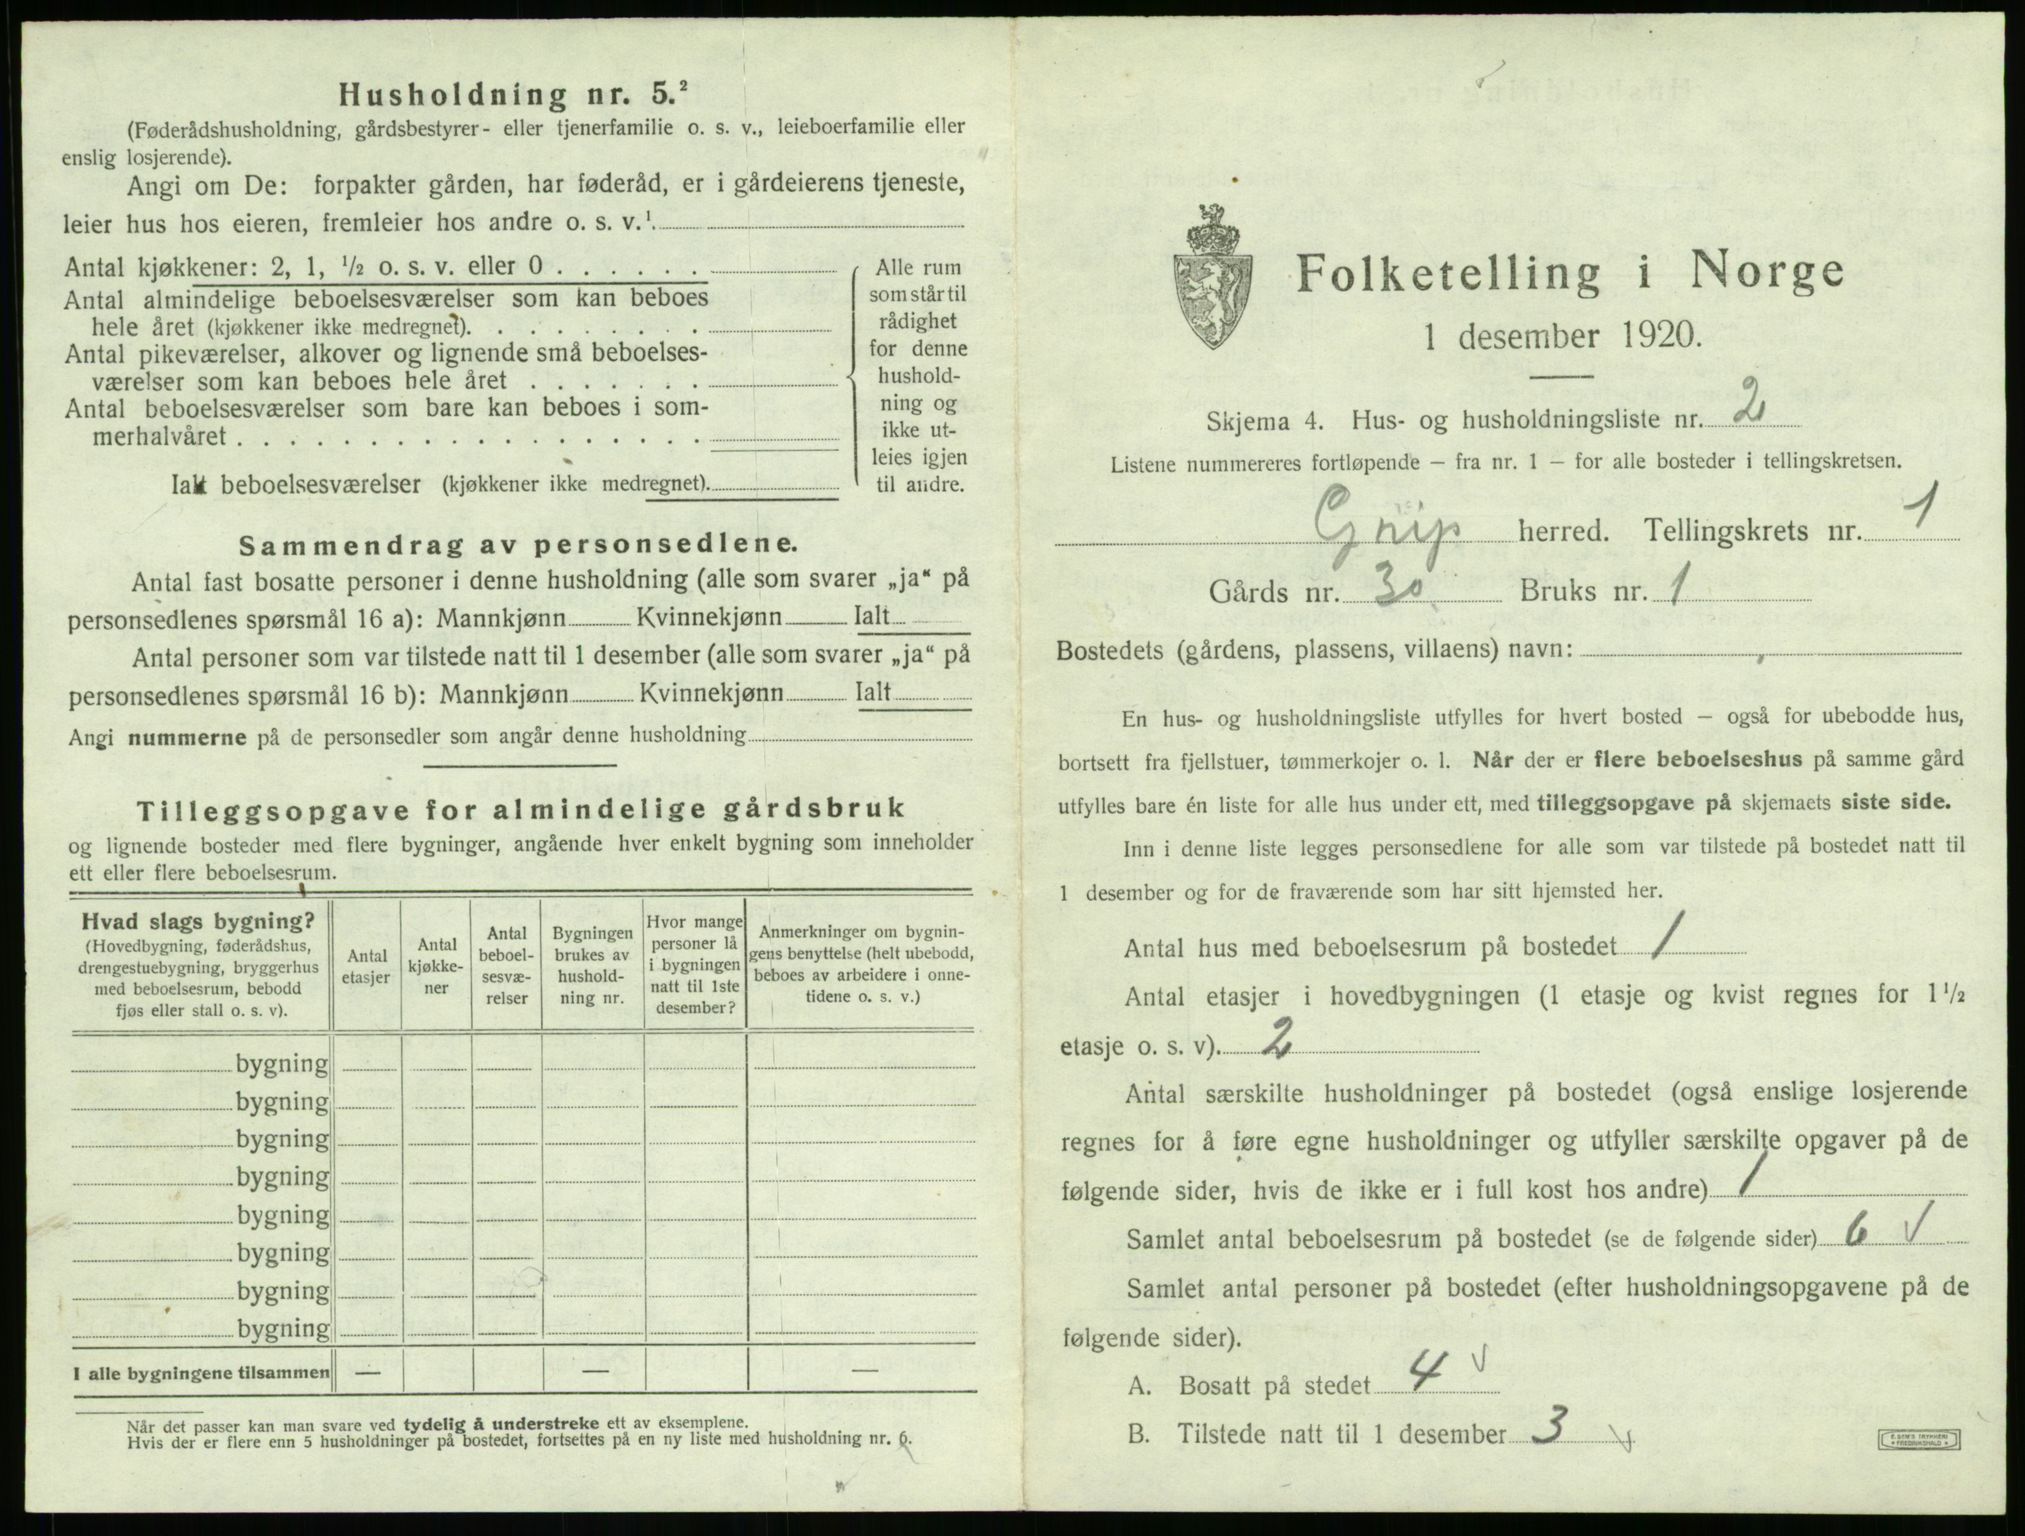 Husholdning nr. 5.²
(Føderådshusholdning, gårdsbestyrer- eller tjenerfamilie o. s. v., leieboerfamilie eller
enslig losjerende).
Angi om De: forpakter gården, har føderåd, er i gårdeierens tjeneste,
leier hus hos eieren, fremleier hos andre o. s. v.¹
Antal kjøkkener: 2, 1, ¹/₂ o. s. v. eller 0 . . . . . .
Antal almindelige beboelsesværelser som kan beboes
hele året (kjøkkener ikke medregnet). . . . . . . . .
Antal pikeværelser, alkover og lignende små beboelses-
værelser som kan beboes hele året . . . . . . .
Antal beboelsesværelser som bare kan beboes i som-
merhalvåret . . . . . . . . . . . . . . . . . .
Ialt beboelsesværelser (kjøkkener ikke medregnet).
Alle rum
som står til
rådighet
for denne
hushold-
ning og
ikke ut-
leies igjen
til andre.
Sammendrag av personsedlene.
Antal fast bosatte personer i denne husholdning (alle som svarer „ja“ på
personsedlenes spørsmål 16 a): Mannkjønn Kvinnekjønn Ialt
Antal personer som var tilstede natt til 1 desember (alle som svarer „ja“ på
personsedlenes spørsmål 16 b): Mannkjønn Kvinnekjønn Ialt
Angi nummerne på de personsedler som angår denne husholdning
Tilleggsopgave for almindelige gårdsbruk
og lignende bosteder med flere bygninger, angående hver enkelt bygning som inneholder
ett eller flere beboelsesrum.
Hvad slags bygning?
(Hovedbygning, føderådshus,
drengestuebygning, bryggerhus
med beboelsesrum, bebodd
fjøs eller stall o. s. v).
Antal
etasjer
Antal
kjøkke-
ner
Antal
beboel-
sesvæ-
relser
Bygningen
brukes av
hushold-
ning nr.
Hvor mange
personer lå
i bygningen
natt til 1ste
desember?
Anmerkninger om bygnin-
gens benyttelse (helt ubebodd,
beboes av arbeidere i onne-
tidene o. s. v.)
bygning
bygning
bygning
bygning
bygning
bygning
bygning
bygning
I alle bygningene tilsammen — — —
Når det passer kan man svare ved tydelig å understreke ett av eksemplene.
Hvis der er flere enn 5 husholdninger på bostedet, fortsettes på en ny liste med husholdning nr. 6.
Folketelling i Norge
1 desember 1920.
Skjema 4. Hus- og husholdningsliste nr. 2
Listene nummereres fortløpende – fra nr. 1 – for alle bosteder i tellingskretsen.
Grip herred. Tellingskrets nr. 1
Gårds nr. 30 Bruks nr. 1
Bostedets (gårdens, plassens, villaens) navn:
En hus- og husholdningsliste utfylles for hvert bosted – også for ubebodde hus,
bortsett fra fjellstuer, tømmerkojer o. l. Når der er flere beboelseshus på samme gård
utfylles bare én liste for alle hus under ett, med tilleggsopgave på skjemaets siste side.
Inn i denne liste legges personsedlene for alle som var tilstede på bostedet natt til
1 desember og for de fraværende som har sitt hjemsted her.
Antal hus med beboelsesrum på bostedet 1
Antal etasjer i hovedbygningen (1 etasje og kvist regnes for 1 ¹/₂
etasje o. s. v). 2
Antal særskilte husholdninger på bostedet (også enslige losjerende
regnes for å føre egne husholdninger og utfyller særskilte opgaver på de
følgende sider, hvis de ikke er i full kost hos andre) 1
Samlet antal beboelsesrum på bostedet (se de følgende sider) 6 √
Samlet antal personer på bostedet (efter husholdningsopgavene på de
følgende sider).
A. Bosatt på stedet 4 √
B. Tilstede natt til 1 desember 3 √
E. SEM'S TRYKKERI
FREDRIKSHALD